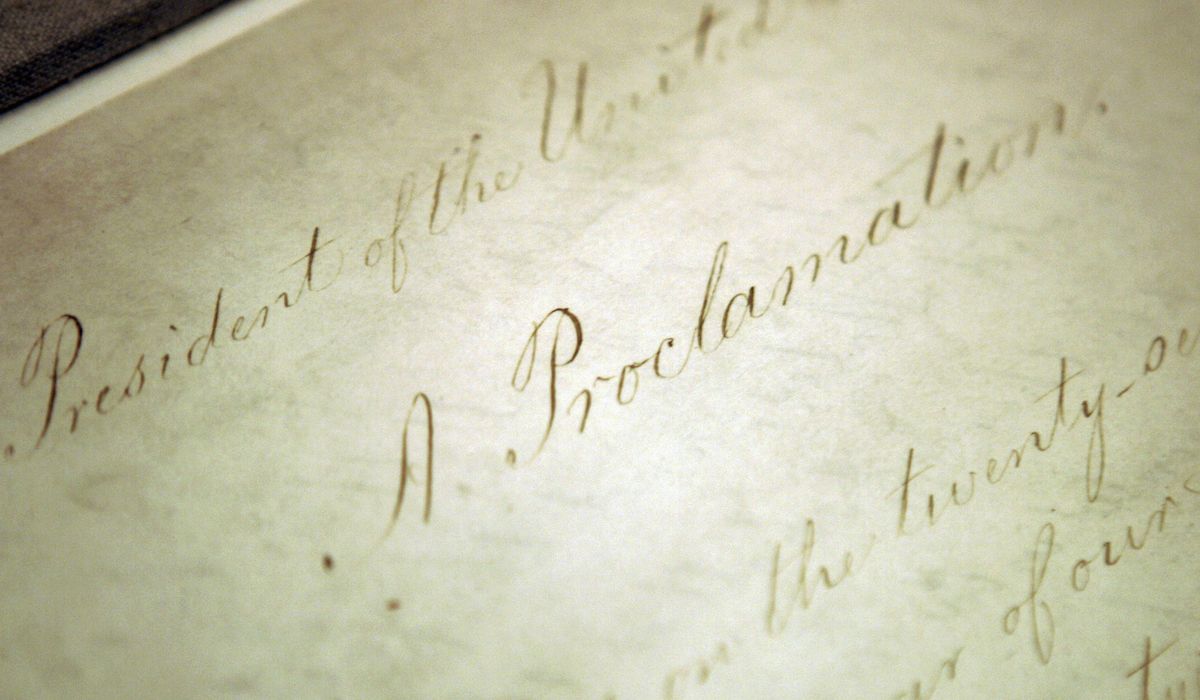 President of the United
A Proclamation.
on the twenty-se
of our